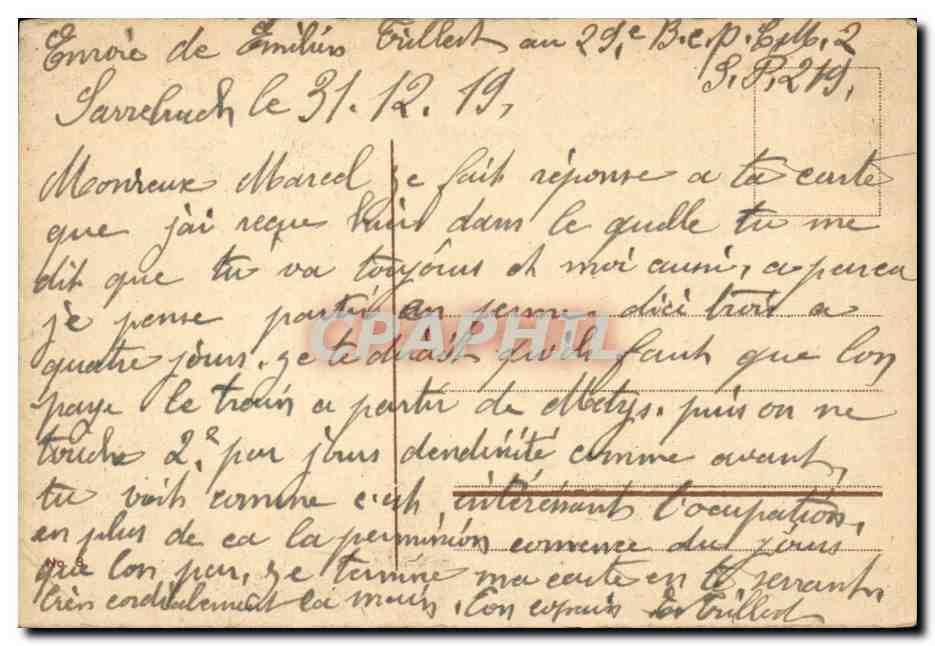 Envoie de Emilien Trillest au 29.e B.c.p. C.M. 2
S.P. 219.
Sarrebruch le 31.12.19,
Monsieux Marcel je fait réponse a ta carte
que j'ai reçue hier dans le quelle tu me
dit que tu va toujours et moi aussi, a par ca
je pense partir en perme, dici trois a
quatre jours. je te dirait qu'il faut que lon
paye le train a partir de Metz. puis on ne
touche 2.e par jours dendénité comme avant,
tu voit comme c'est intéréssant l'ocupation,
en plus de ca la permission comence du jours
que lon par, je termine ma carte en te serrant,
très cordialement la main. Ton copain E Trillest
No 9
CPAPHIL